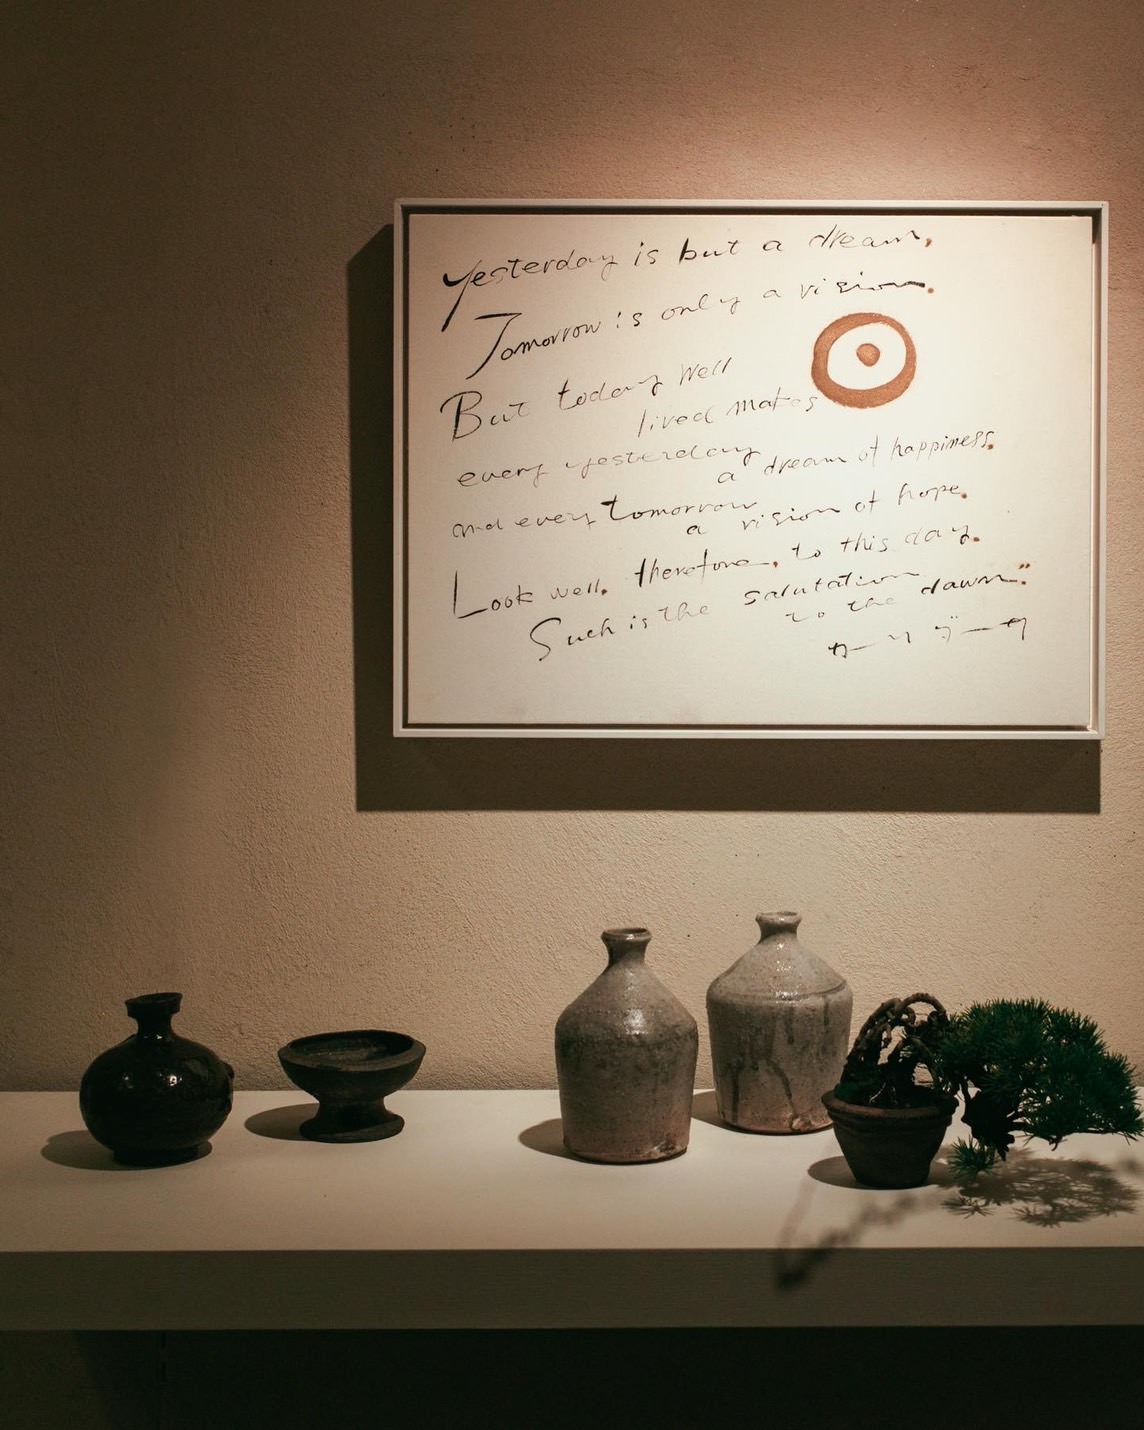 Yesterday is but a dream,
Tomorrow is only a vision.
But today well
lived makes
every yesterday
a dream of happiness.
and every tomorrow
a vision of hope.
Look well, therefore, to this day.
Such is the salutation
to the dawn."